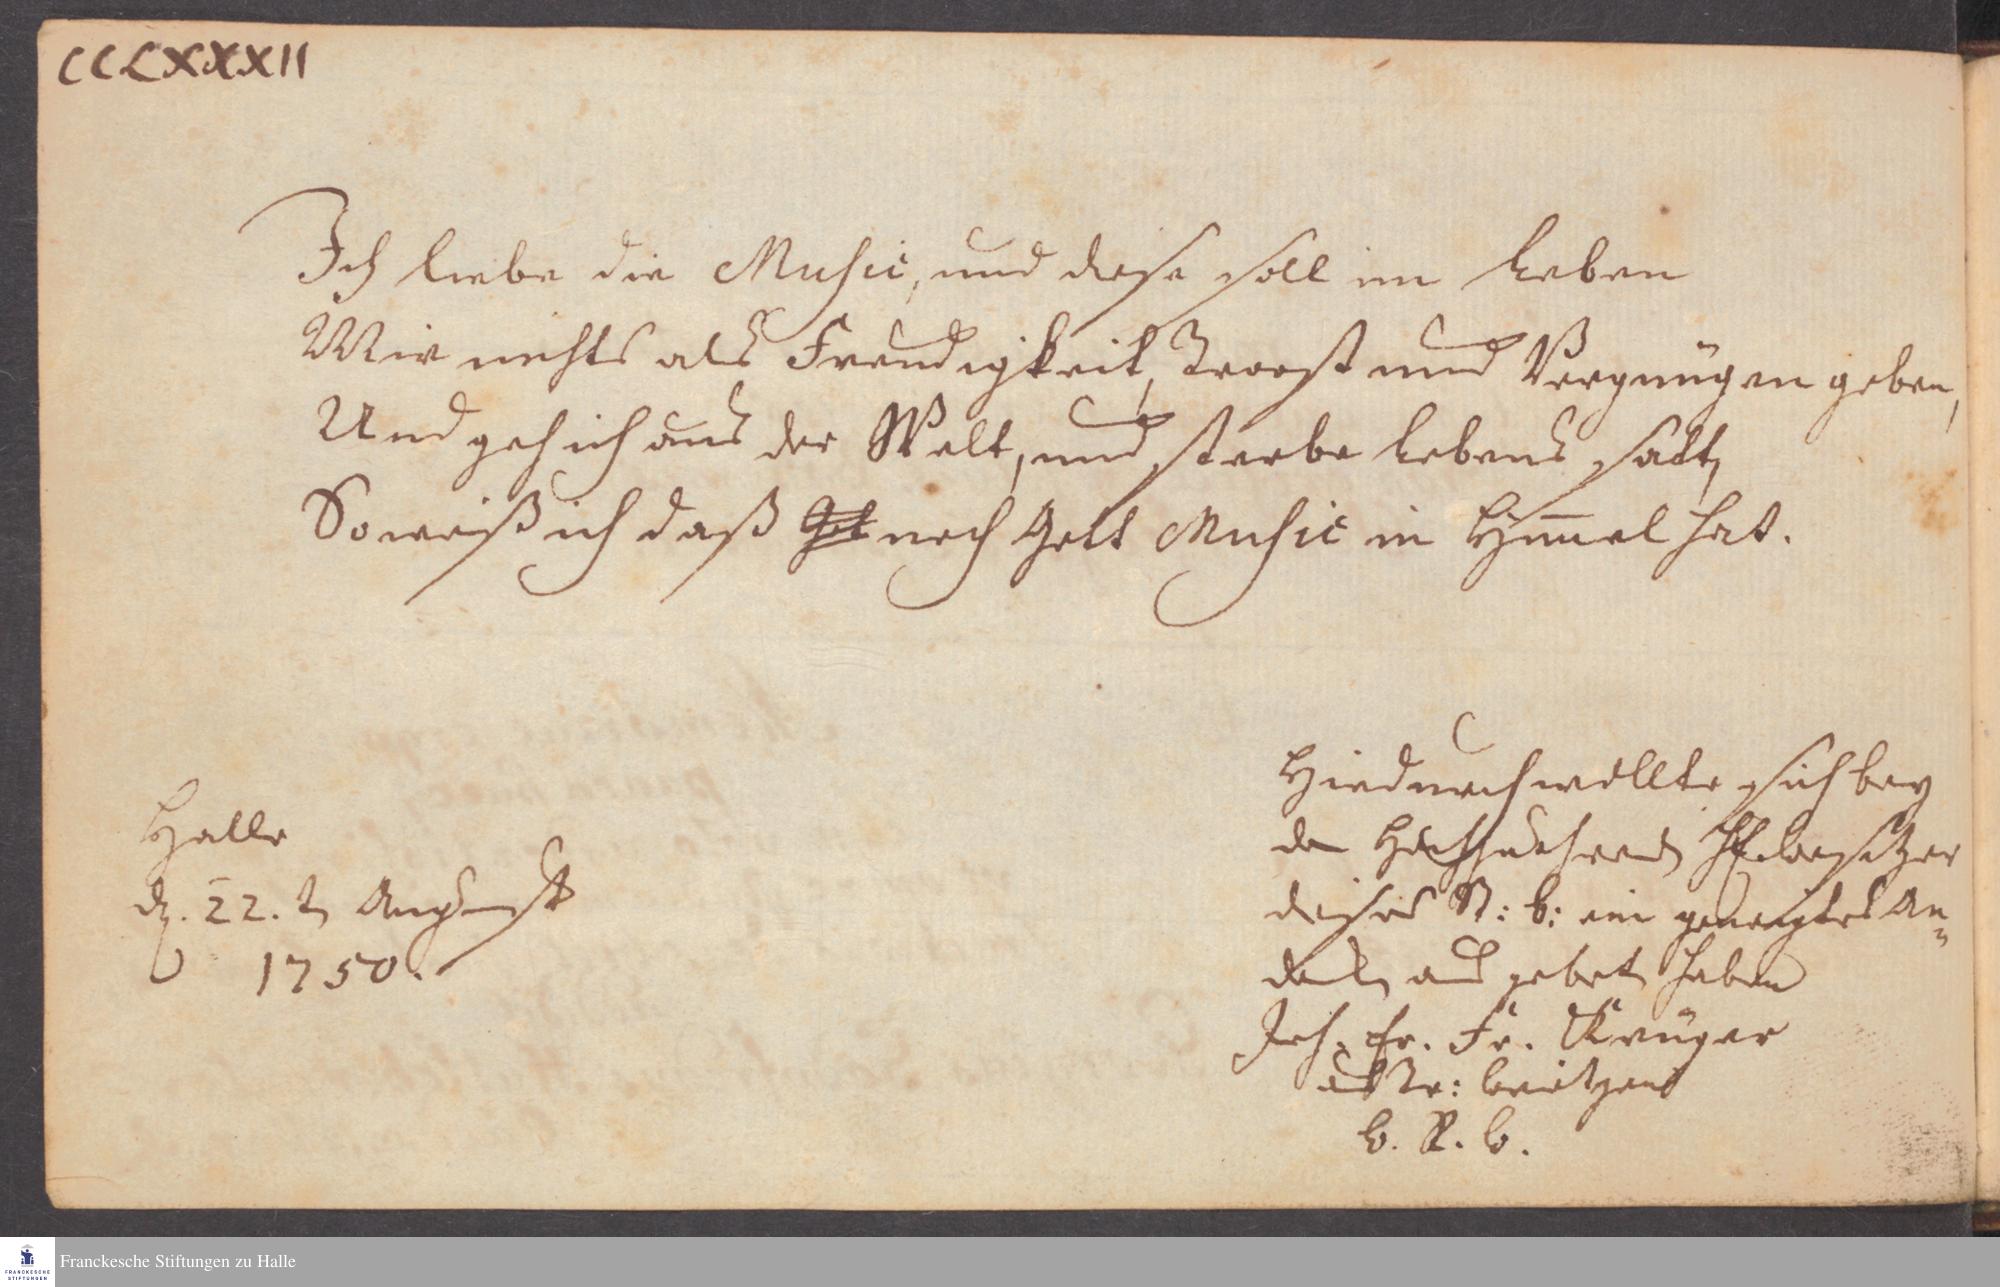 CCCLXXXII
Ich liebe die Music, und diese soll im Leben
Mir nichts als Freudigkeit, Troost und Vergnügen geben,
Und geh ich aus der Welt, und sterbe lebens satt,
So weiß ich daß Got noch Gott Music in Himmel hat.
Halle
d. 22. t August
1750.
Hiedurch wollte sich bey
den Hochzuehrend H. besitzer
dieses St: b: ein geneigtes An=
denk aus gebet haben
Joh. Fr. Krüger
Tr: brietzens
Franckesche Stiftungen zu Halle
FRANCKESCHE
STIFTUNGEN